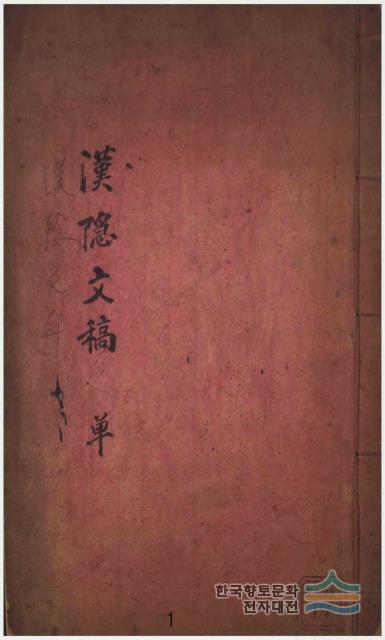 漢隐文稿 単
한국향토문화
전자대전
1